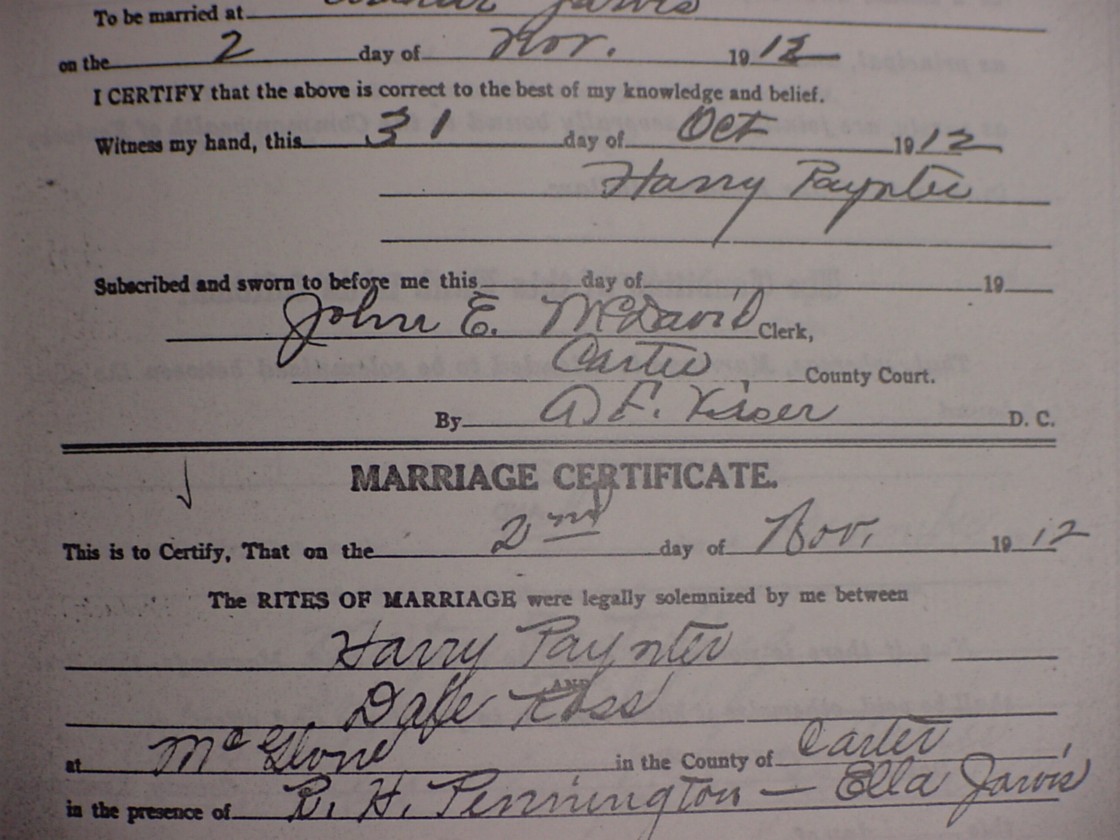 To be married at Jarvis
on the 2 day of Nov. 1912
I CERTIFY that the above is correct to the best of my knowledge and belief.
Witness my hand, this 31 day of Oct 1912
Harry Paynter
Subscribed and sworn to before me this day of 19
John E. McDavid Clerk,
Carter County Court.
By A F. Kiser D. C.
MARRIAGE CERTIFICATE.
This is to Certify, That on the 2nd day of Nov. 1912
The RITES OF MARRIAGE were legally solemnized by me between
Harry Paynter
AND
Ross
at McGlone in the County of Carter
in the presence of R. H. Pennington — Ella Jarvis